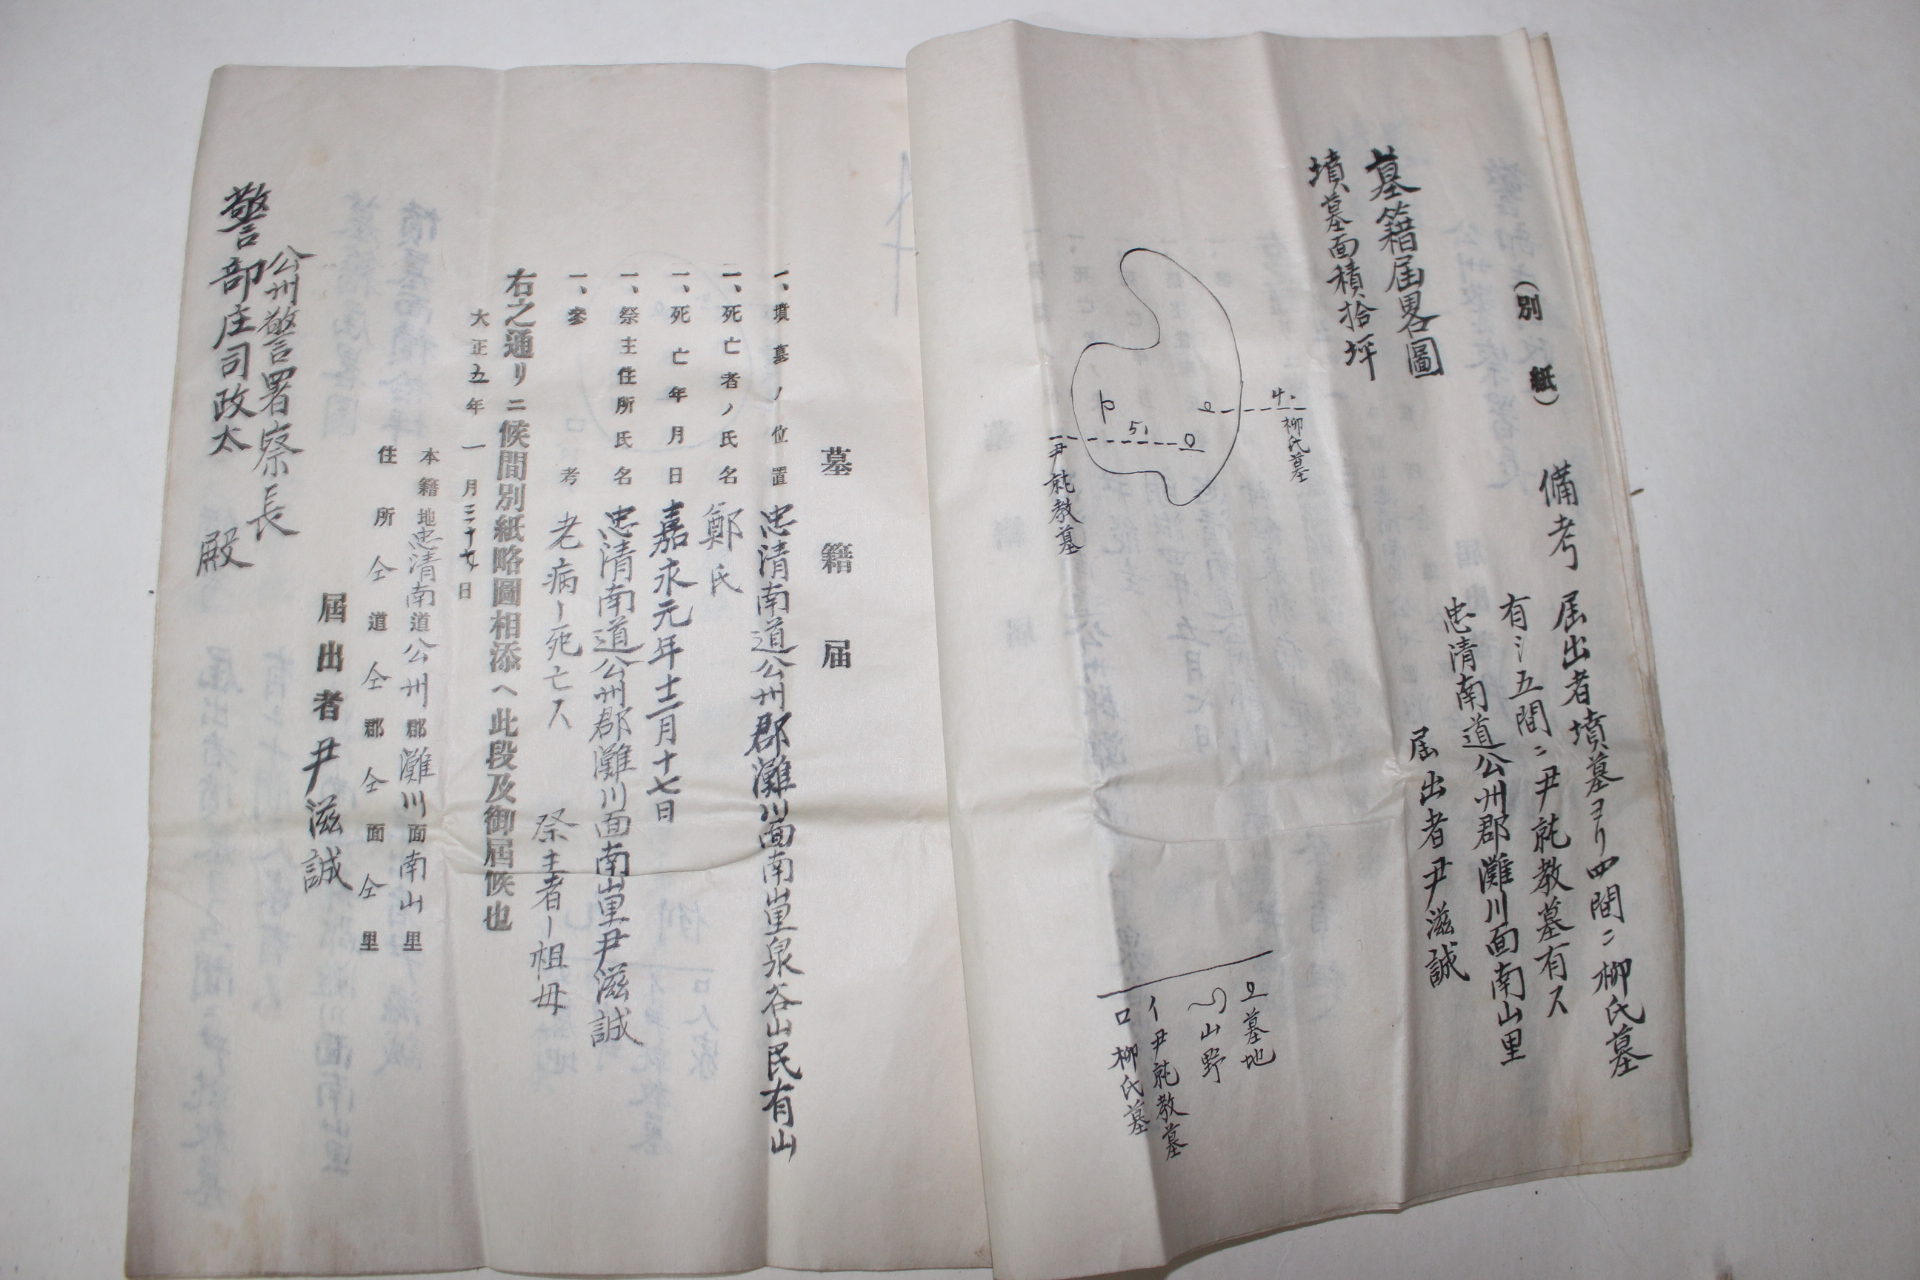 (別紙)
備考 届出者墳墓ヨリ四間ニ柳氏墓
有シ五間ニ尹㲄教墓有ス
忠清南道公州郡灘川面南山里
届出者尹滋誠
墓籍届畧圖
墳墓面積拾坪
4.
柳氏墓
5.
尹㲄教墓
墓地
山野
イ尹㲄教墓
ロ柳氏墓
墓籍届
一、墳墓ノ位置 忠清南道公州郡灘川面南山里泉谷山民有山
一、死亡者ノ氏名 鄭氏
一、死亡年月日 嘉永元年十二月十七日
一、祭主住所氏名 忠清南道公州郡灘川面南山里尹滋誠
一、參考 老病ー死亡ス 祭主者ー祖母
右之通リニ候間別紙略圖相添ヘ此段及御屆候也
大正五年一月三十日
本籍地忠清南道公州郡灘川面南山里
住所仝道仝郡仝面仝里
屆出者尹滋誠
公州警察署長
警部庄司政太殿